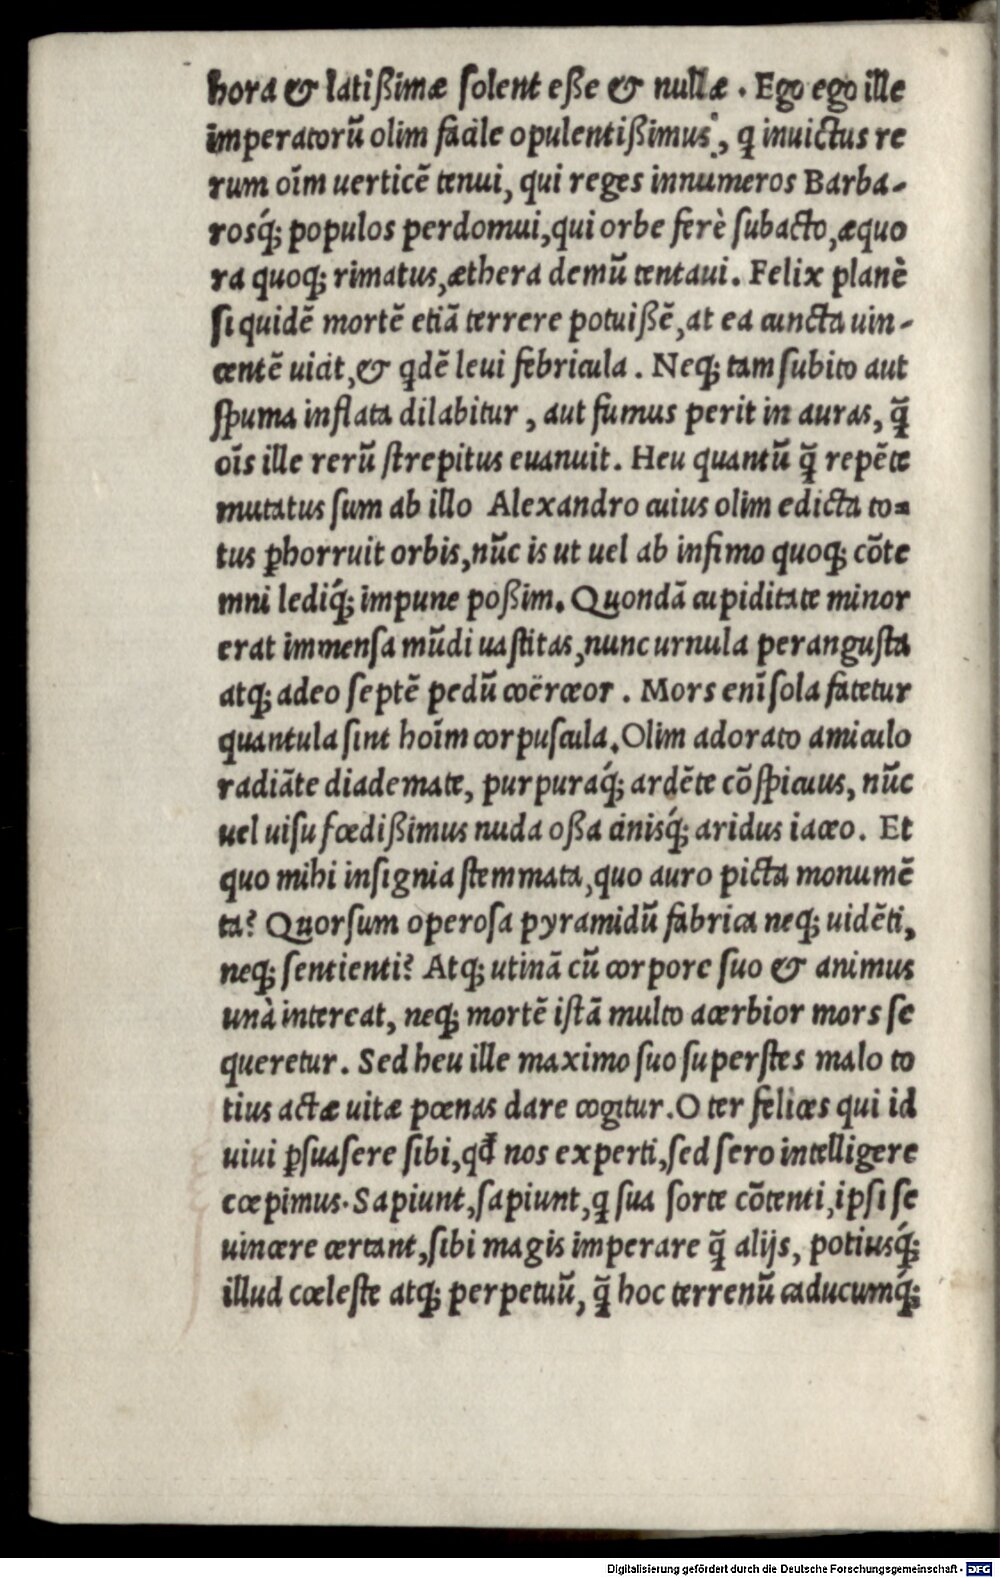 hora & latißimæ ſolent eße & nullæ. Ego ego ille
imperatorū olim facile opulentißimus, ꝗ inuictus re
rum oīm uerticē tenui, qui reges innumeros Barba-
rosq́; populos perdomui, qui orbe ferè ſubacto, æquo
ra quoq; rimatus, æthera demū tentaui. Felix planè
ſi quidē mortē etiā terrere potuißē, at ea cuncta uin-
centē uicit, & qdē leui febricula. Neq; tam ſubito aut
ſpuma inflata dilabitur, aut fumus perit in auras, ꝗ̃
oīs ille rerū ſtrepitus euanuit. Heu quantū ꝗ̃ repēte
mutatus ſum ab illo Alexandro cuius olim edicta to=
tus ꝑhorruit orbis, nūc is ut uel ab infimo quoq; cōte
mni lediq́; impune poßim. Quondā cupiditate minor
erat immenſa mūdi uaſtitas, nunc urnula peranguſta
atq; adeo ſeptē pedū coërceor. Mors enī ſola fatetur
quantula ſint hoīm corpuſcula. Olim adorato amiculo
radiāte diademate, purpuraq́; ardēte cōſpicuus, nūc
uel uiſu fœdißimus nuda oßa cinisq́; aridus iaceo. Et
quo mihi inſignia ſtemmata, quo auro picta monumē
ta? Quorſum operoſa pyramidū fabrica neq; uidēti,
neq; ſentienti? Atq; utinā cū corpore ſuo & animus
unà intereat, neq; mortē iſtā multo acerbior mors ſe
queretur. Sed heu ille maximo ſuo ſuperſtes malo to
tius actæ uitæ pœnas dare cogitur. O ter felices qui id
uiui ꝑſuaſere ſibi, qđ nos experti, ſed ſero intelligere
cœpimus. Sapiunt, ſapiunt, ꝗ ſua ſorte cōtenti, ipſi ſe
uincere certant, ſibi magis imperare ꝗ̃ alijs, potiusq́;
illud cœleſte atq; perpetuū, ꝗ̃ hoc terrenū caducumq́;
Digitalisierung gefördert durch die Deutsche Forschungsgemeinschaft - DFG